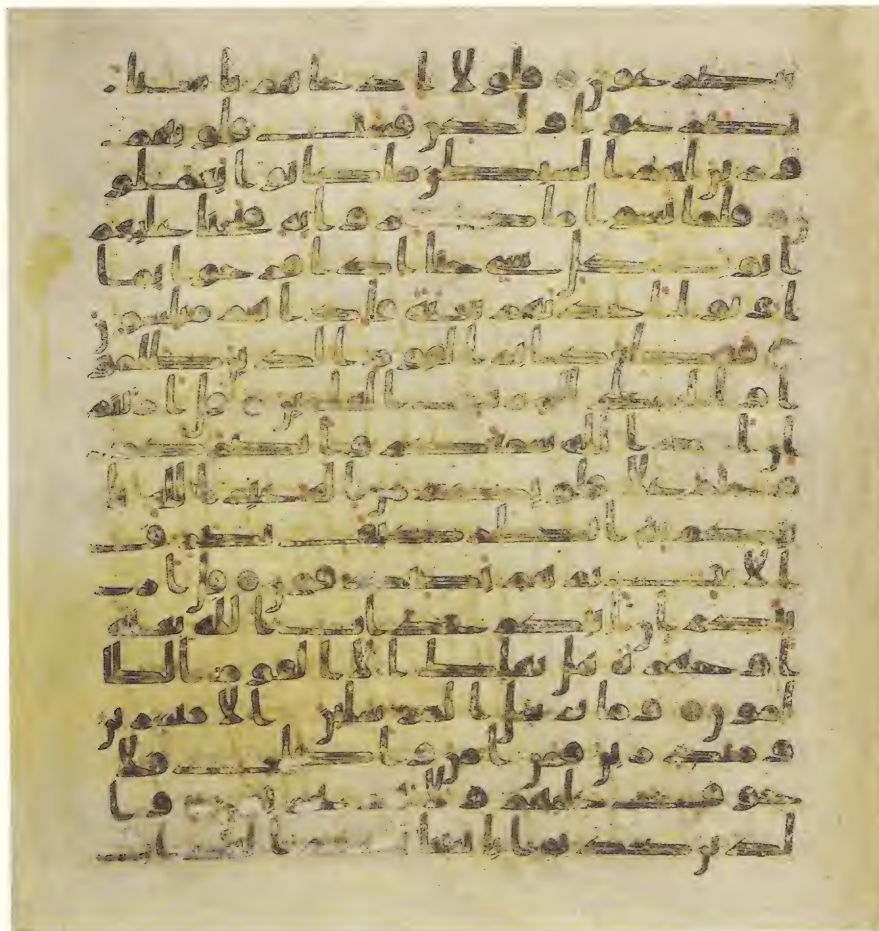 يتضرعون فلولا اذ جاهم باسنا
تضرعوا ولكن قست قلوبهم
وزين لهم الشيطن ما كانوا يعملو
ن فلما نسوا ما ذكروا به فتحنا عليهم
ابوب كل شي حتى اذا فرحوا بما
اوتوا اخذنهم بغتة فاذا هم مبلسون
فقطع دابر القوم الذين ظلمو
ا والحمد لله رب العلمين قل اريتم
ان اخذ الله سمعكم وابصركم
وختم على قلوبكم من اله غير الله يا
تيكم به انظر كيف نصرف
الايت ثم هم يصدفون قل اريـ
تكم ان اتيكم عذاب الله بغتة
او جهرة هل يهلك الا القوم الظا
لمون وما نرسل المرسلين الا مبشرين
ومنذرين فمن امن واصلح فلا
خوف عليهم ولا هم يحزنون وا
لذين كذبوا بايتنا يمسهم العذاب